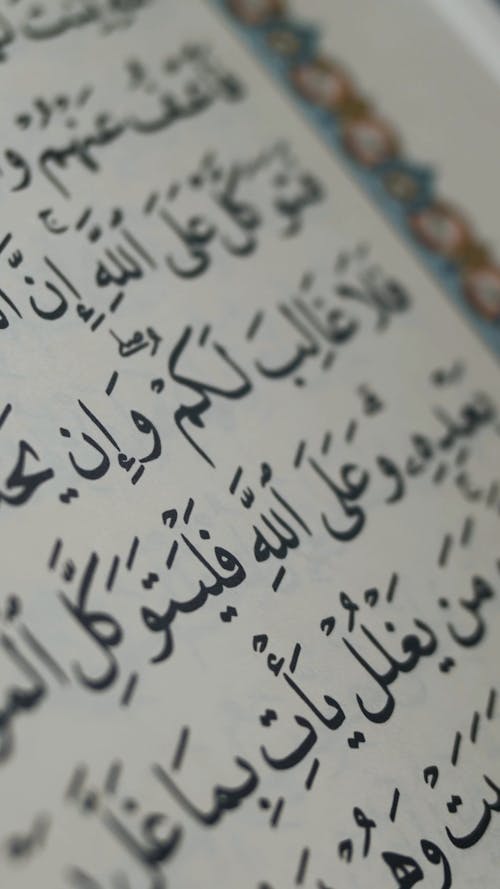 فَٱعْفُ عَنْهُمْ
فَتَوَكَّلْ عَلَى ٱللَّهِ إِنَّ
فَلَا غَالِبَ لَكُمْ ۖ وَإِن
بَعْدِهِۦ وَعَلَى ٱللَّهِ فَلْيَتَوَكَّلِ
مَن يَغْلُلْ يَأْتِ بِمَا غَلَّ
وَهُمْ